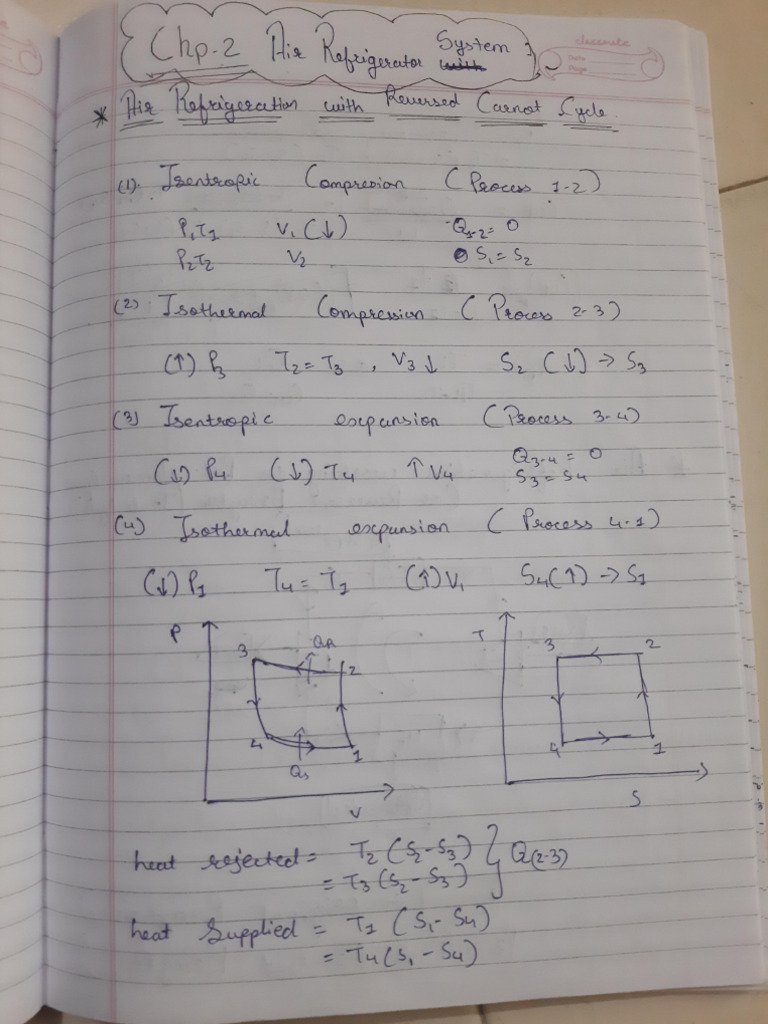 Chp-2 Air Refrigerator System
with
classmate
Date
Page
* Air Refrigeration with Reversed Carnot Cycle.
(1). Isentropic Compresion (Process 1-2)
P₁T₁ V₁ (↓) Q₁₋₂ = 0
P₂T₂ V₂ S₁ = S₂
(2) Isothermal Compression (Process 2-3)
(↑) P₃ T₂ = T₃ , V₃ ↓ S₂ (↓) → S₃
(3) Isentropic expansion (Process 3-4)
(↓) P₄ (↓) T₄ ↑ V₄ Q₃₋₄ = 0
S₃ = S₄
(4) Isothermal expansion (Process 4-1)
(↓) P₁ T₄ = T₁ (↑) V₁ S₄(↑) → S₁
P 3 QR 2 4 Qs 1 V
T 3 2 4 1 S
heat rejected = T₂ (S₂ - S₃) } Q(2-3)
= T₃ (S₂ - S₃)
heat Supplied = T₁ (S₁ - S₄)
= T₄ (S₁ - S₄)